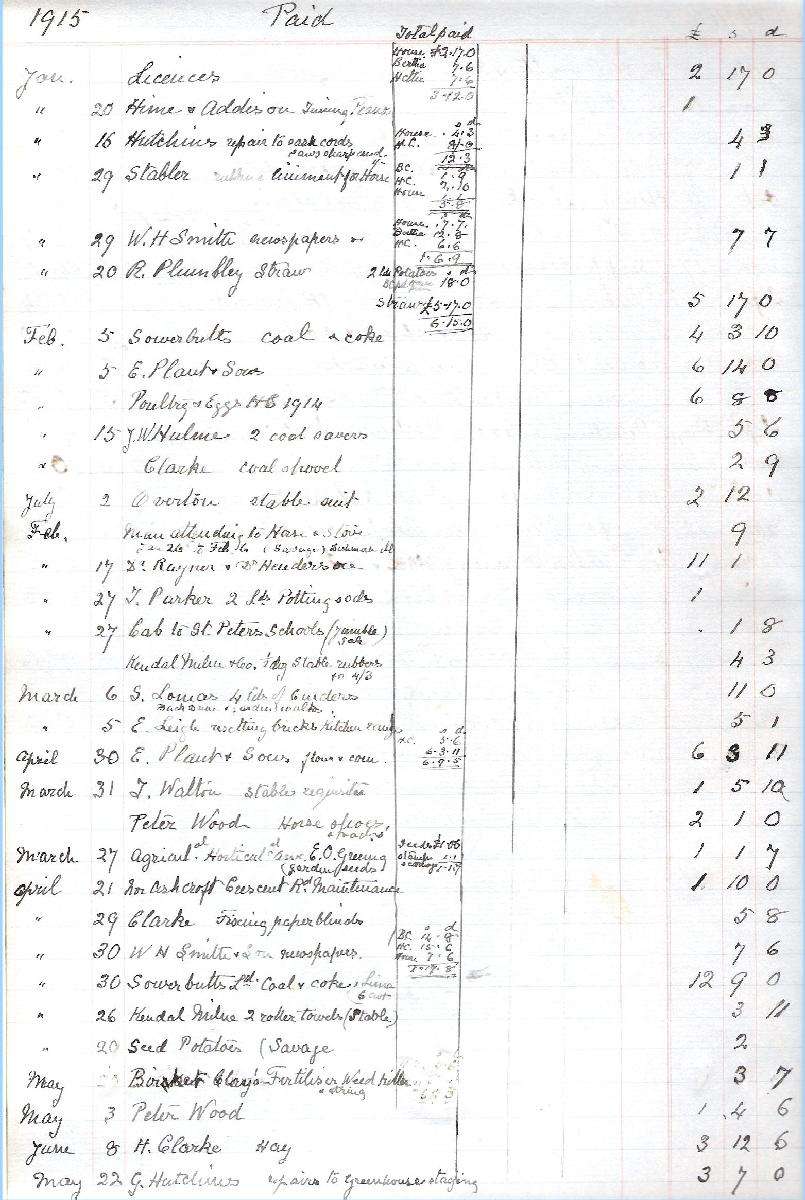 1915 Paid
Total paid £ s d
House £2.17.0
Bertha 7.6
Jan. Licences Hettie 7.6 2 17 0
3.12.0
" 20 Hime & Addison Tuning 1
" 16 Hutchins repair to sash cords House 4.3 4 3
saws sharpened H.C.
12.3
" 29 Stabler liniment for Horse B.C. 1.9 1 1
H.C.
House
House 7.7
Bertha 12.8
" 29 W. H Smith newspapers H.C. 6.6 7 7
1.6.9
" 20 R. Plumbley Straw Potatoes s d
18.0
Straw £5.17.0 5 17 0
6.15.0
Feb. 5 Sowerbutts coal & coke 4 3 10
" 5 E. Plant & Sons 6 14 0
" Poultry & Eggs HC 1914 6 8
" 15 J. W Hulme 2 coal savers 5 6
" Clarke coal shovel 2 9
July 2 Overton stable suit 2 12
Feb. Man attending to Horse & Stove 9
(Savage)
" 17 Dr Rayner & Dr Henderson 11 1
" 27 T. Parker 2 Lds Potting sods 1
" 27 Cab to St. Peters Schools (Jumble) 1 8
Sale
Kendal Milne & Co. ½ doz Stable rubbers 4 3
4/3
March 6 S. Lomas 4 Lds of Cinders 11 0
" 5 E. Leigh resetting bricks Kitchen range 5 1
s d
H.C. 5.6
April 30 E. Plant & Sons flour & corn 6.3.11 6 3 11
6.9.5
March 31 T. Walton stable requisites 1 5 10
Peter Wood Horse shoes 2 1 0
March 27 Agricul. Horticul. E. O. Greening Seeds 1 1 7
(garden seeds
April 21 Ashcroft Crescent Rd Maintenance 1 10 0
" 29 Clarke Fixing paper blinds 5 8
s d
BC. 14.8
" 30 W H Smith & Son newspapers. HC. 15.6 7 6
House 7.6
1.17.8
" 30 Sowerbutts Ld. Coal & coke & Lime 12 9 0
6 cwt
" 26 Kendal Milne 2 roller towels (Stable) 3 11
" 20 Seed Potatoes (Savage 2
May Clay's Fertiliser Weed Killer 3 7
& string
May 3 Peter Wood 1 4 6
June 8 H. Clarke Hay 3 12 6
May 22 G. Hutchins repairs to greenhouse staging 3 7 0